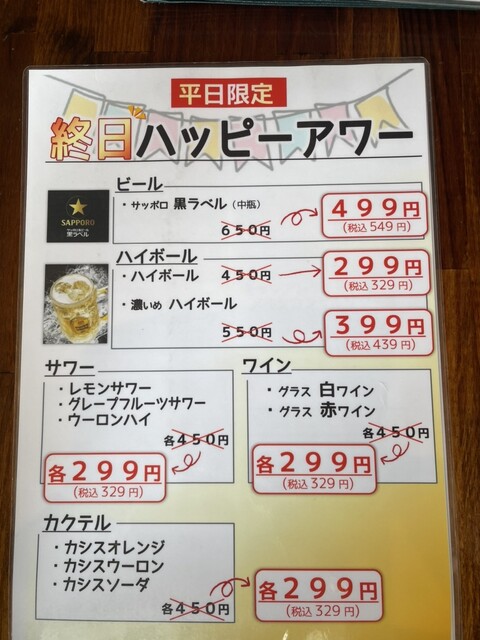 平日限定
終日ハッピーアワー
ビール
・サッポロ 黒ラベル（中瓶）
650円
499円
(税込 549円)
SAPPORO
黒ラベル
ハイボール
・ハイボール 450円
299円
(税込 329円)
・濃いめ ハイボール
550円
399円
(税込 439円)
サワー
・レモンサワー
・グレープフルーツサワー
・ウーロンハイ
各450円
各299円
(税込 329円)
ワイン
・グラス 白ワイン
・グラス 赤ワイン
各450円
各299円
(税込 329円)
カクテル
・カシスオレンジ
・カシスウーロン
・カシスソーダ
各450円
各299円
(税込 329円)